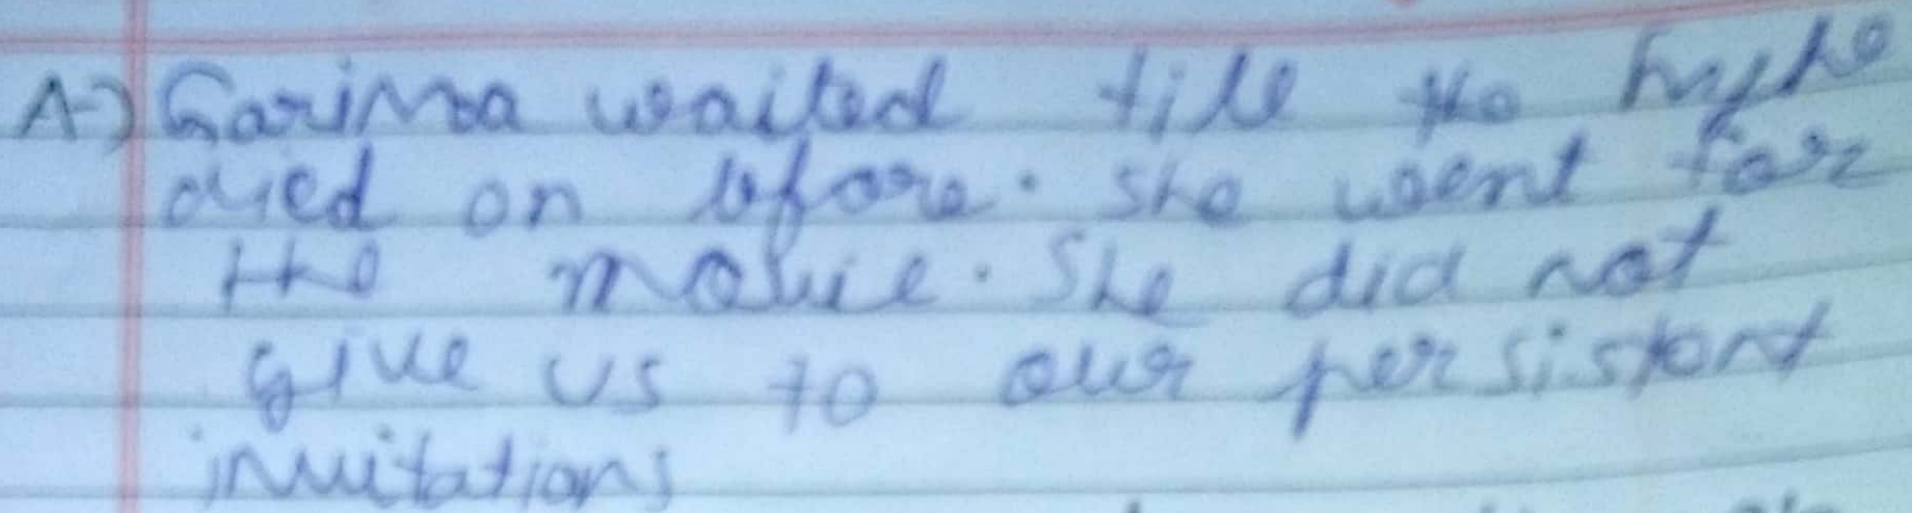 A-) Garima waited till the hype
died on before. She went for
the movie. She did not
give us to our persistant
invitations